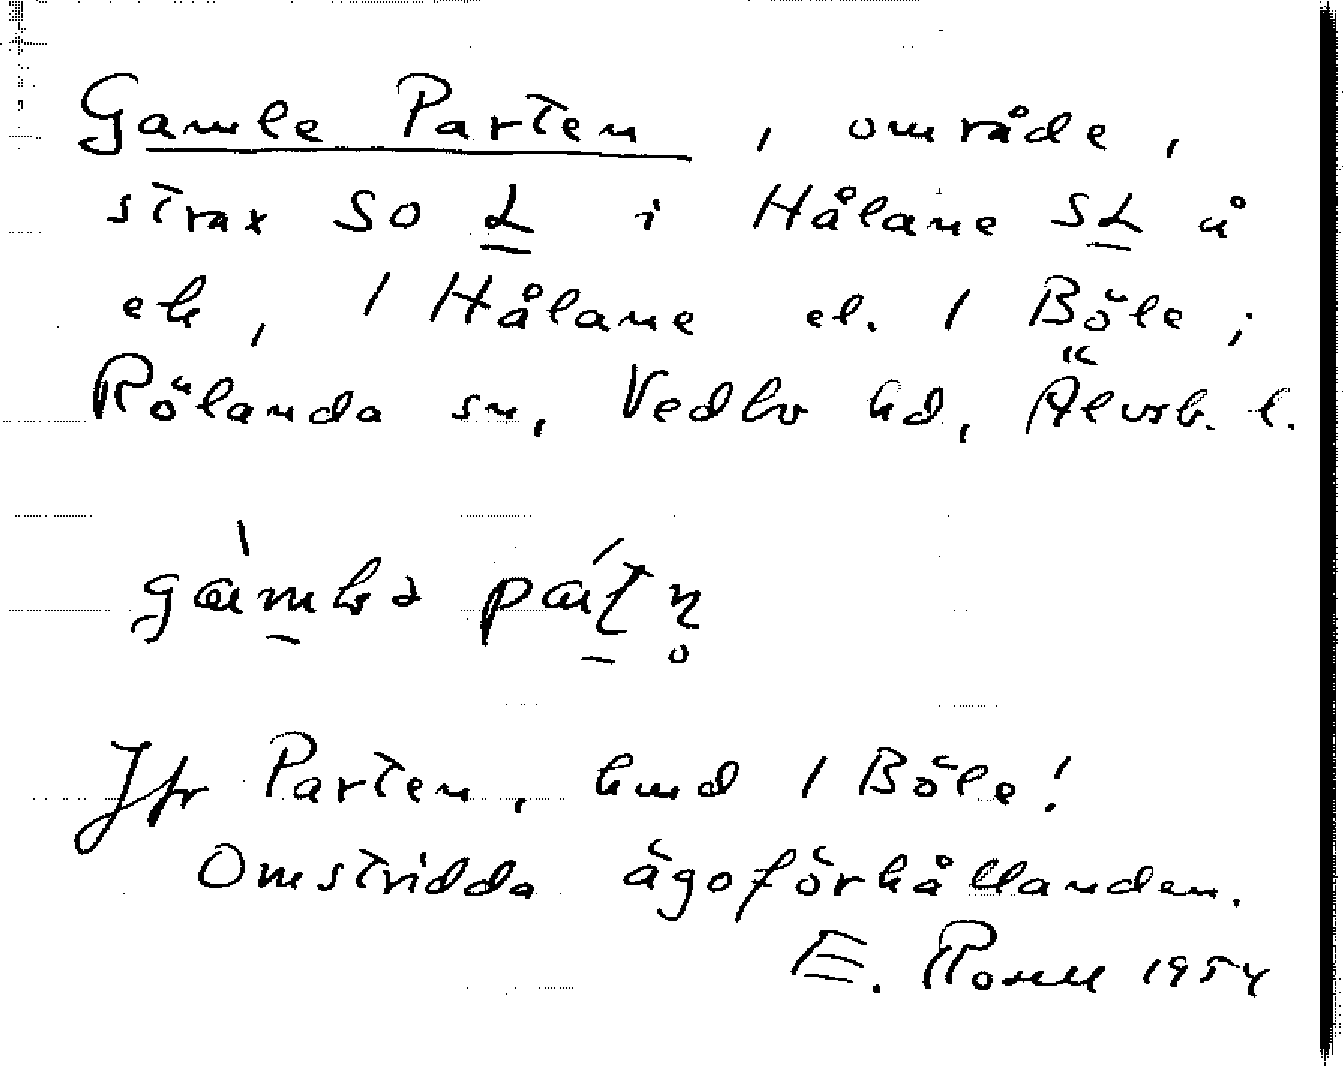 Gamle Parten, område,
strax SO L i Hålane SL å
ek, 1 Hålane el. 1 Böle;
Rölanda sn, Vedbo hd, Älvsb. l.
Jfr Parten, hmd 1 Böle!
Omstridda ägoförhållanden.
E. Rosell 1954